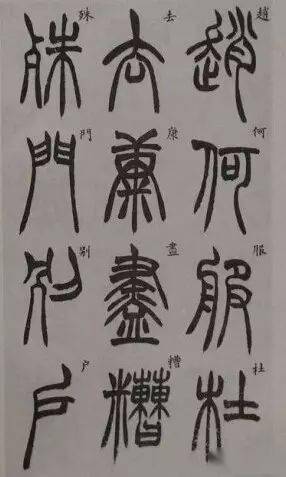 趙何服杜
去康盡糟
殊門别户